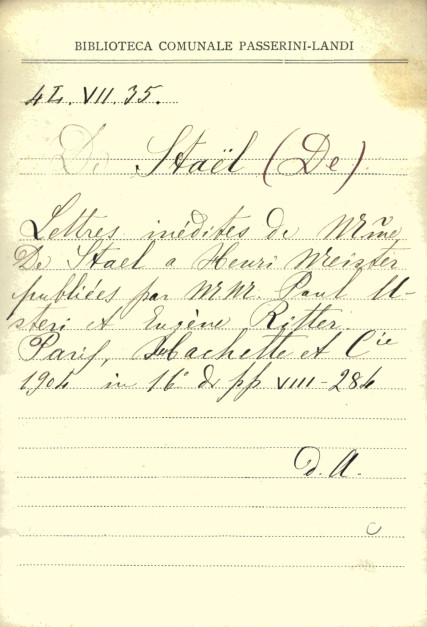 BIBLIOTECA COMUNALE PASSERINI-LANDI
4L. VII. 35.
De Staël (De)
Lettres inédites de Mme
De Stael a Henri Meister
publiées par MM. Paul U-
steri et Eugène Ritter.
Paris, Hachette et Cie
1904 in 16° di pp VIII-284
d. A.
C